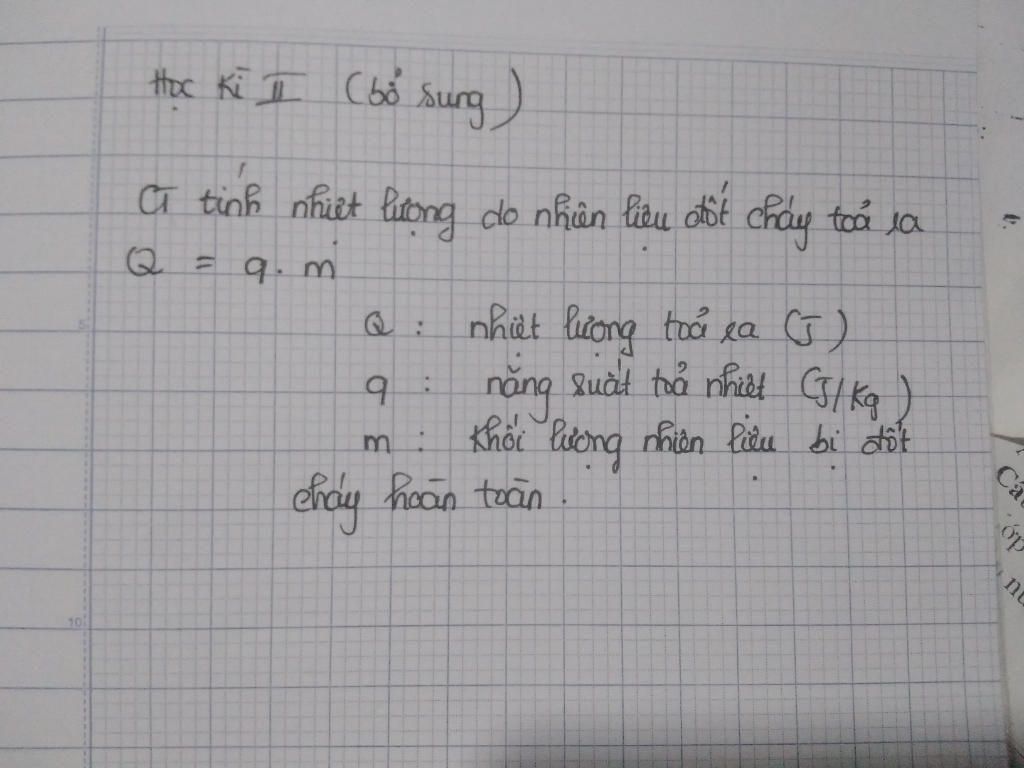 Học Kì II (bổ sung)
CT tính nhiệt lượng do nhiên liệu đốt cháy toả ra
Q = q . m
Q : nhiệt lượng toả ra (J)
q : năng suất toả nhiệt (J/Kg)
m : Khối lượng nhiên liệu bị đốt
cháy hoàn toàn .
5
10